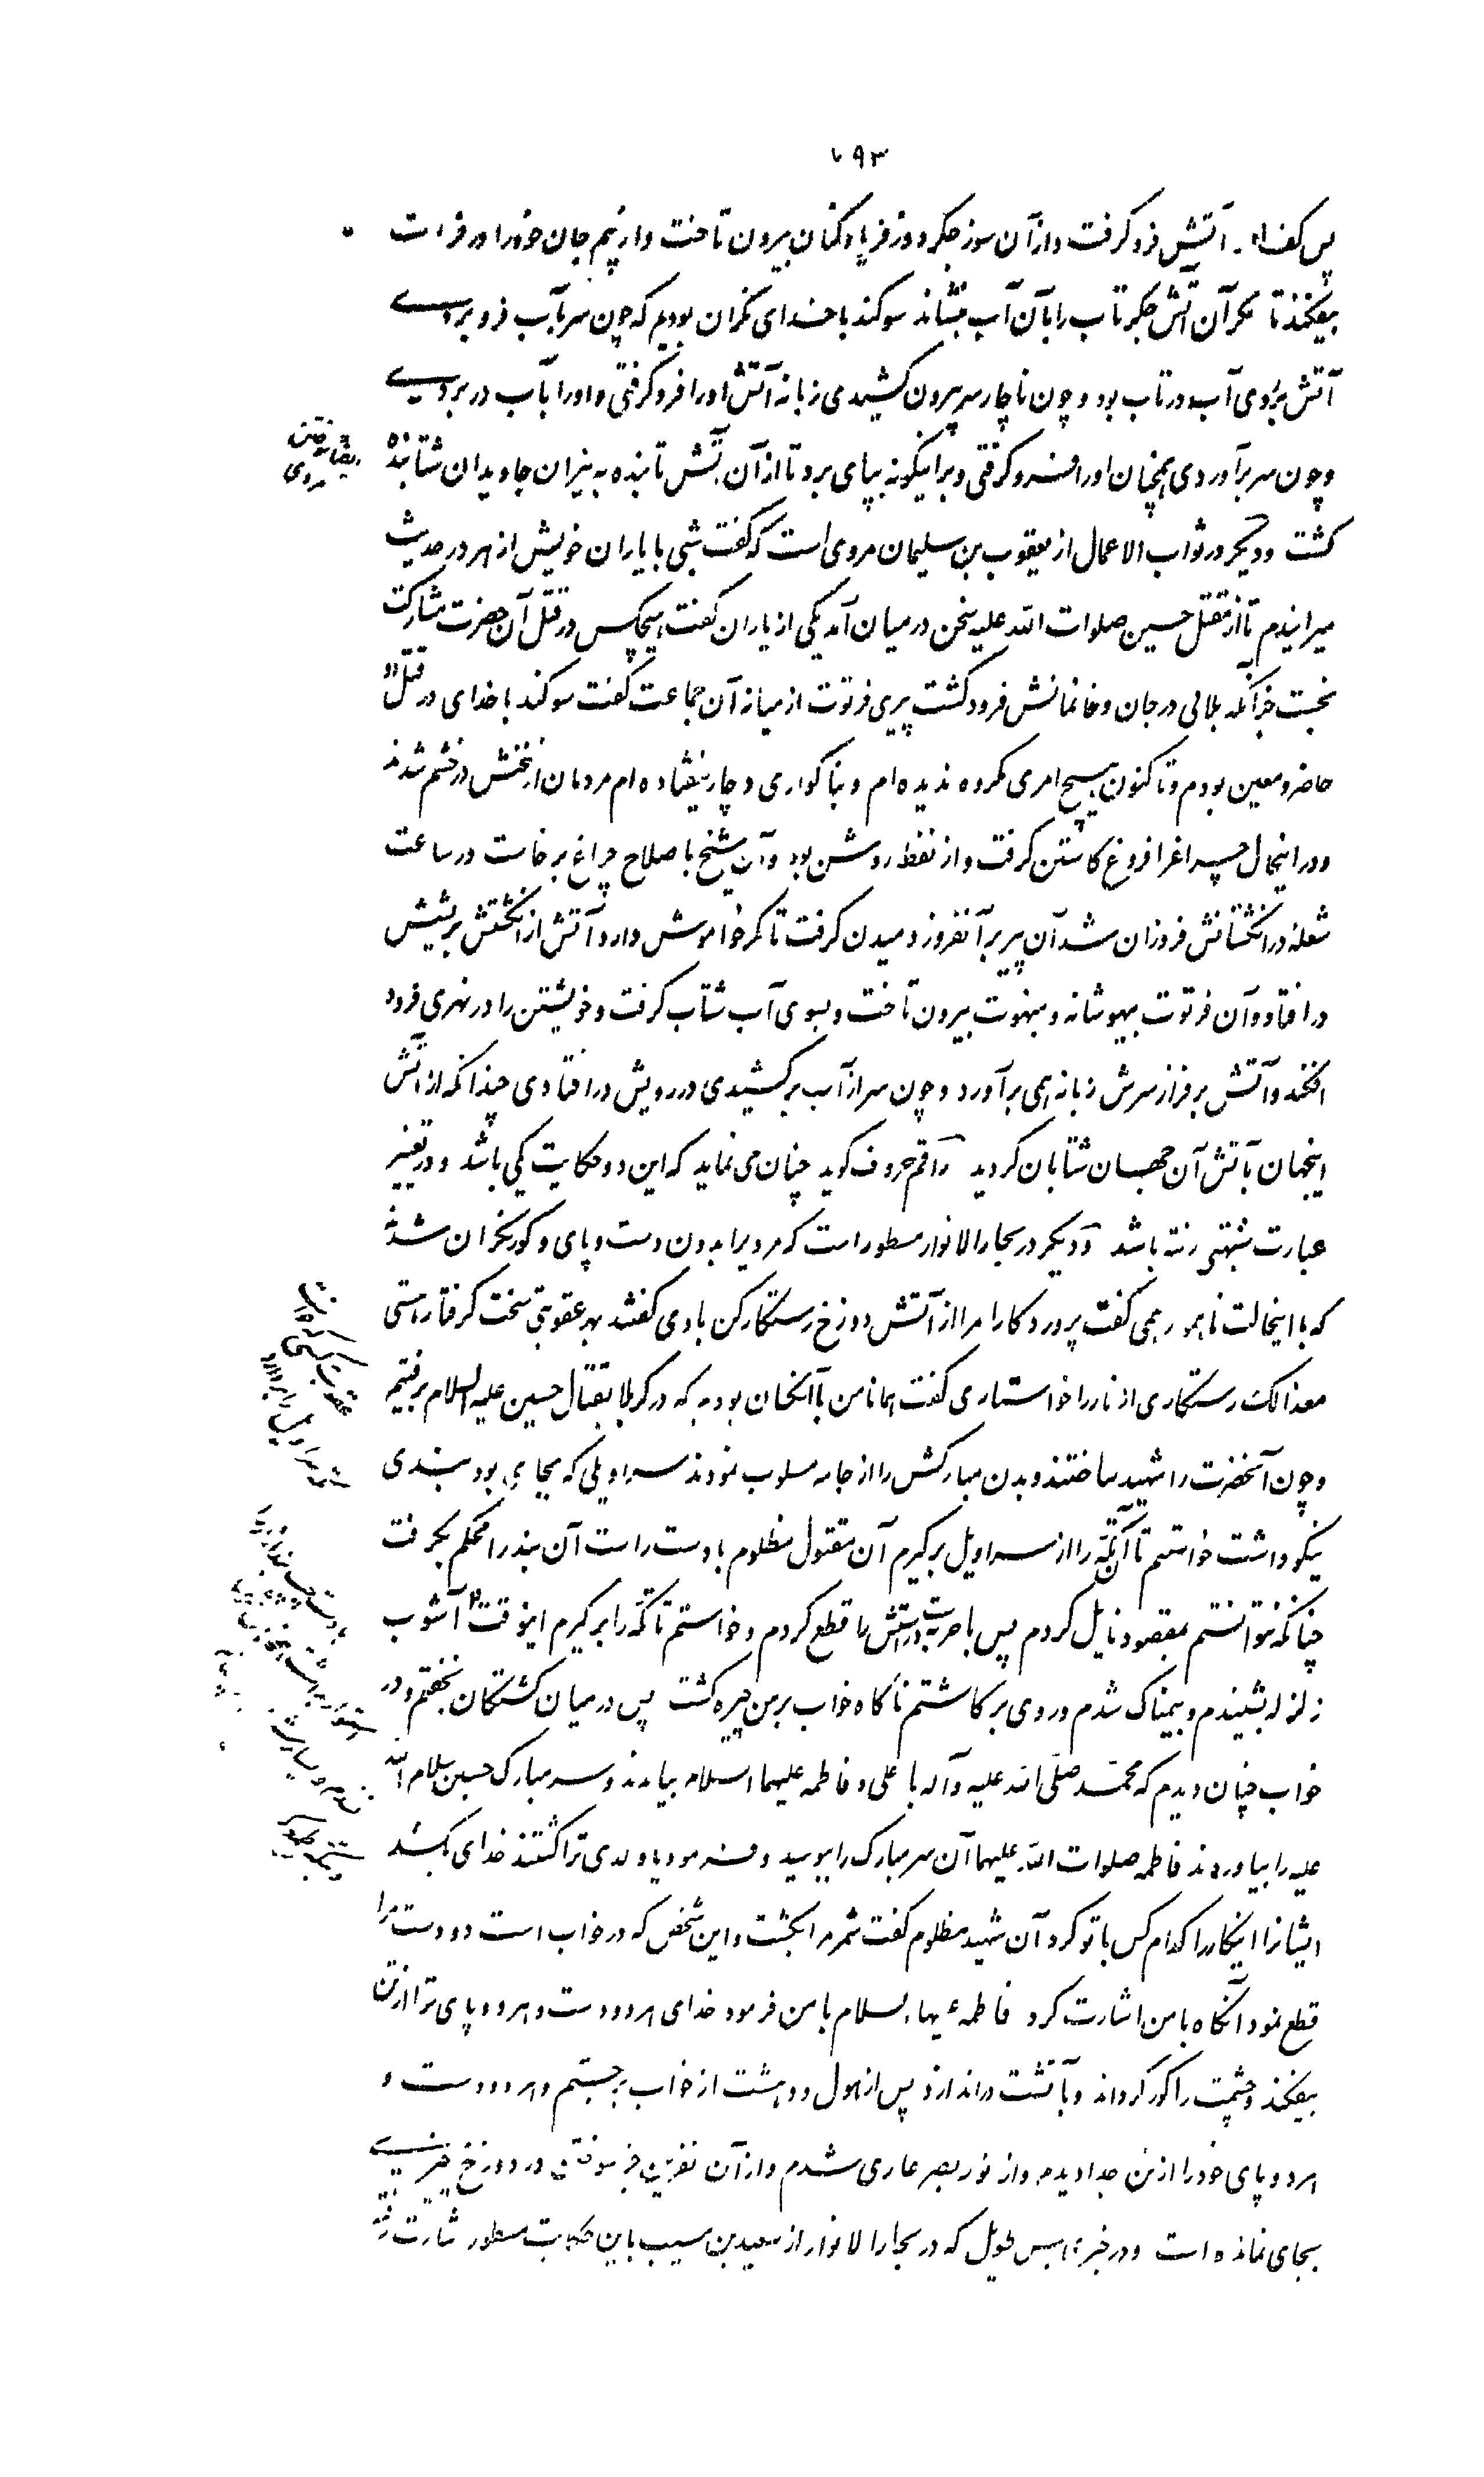 ۷۹۳
پس کف او آتش فرو گرفت و از آن سوز جگر دوز فریاد کنان بیرون تاخت و از بیم جان خود را در فرات
بیفکند تا مگر آن آتش جگر تاب را بآن آب بنشاند سوگند با خدای نگران بودیم که چون سر بآب فرو بردے
آتش بر روی آب در تاب بود و چون ناچار سر بیرون کشیدی زبانه آتش او را فرو گرفتی و او را بآب در بردے
و چون سر برآوردی همچنان او را فرو گرفتی و بر اینگونه بپای برد تا از آن آتش تابنده به نیران جاویدان شتابنده
گشت و دیگر در ثواب الاعمال از یعقوب بن سلیمان مروی است که گفت شبی با یاران خویش از هر در حدیث
میراندیم تا از مقتل حسین صلوات الله علیه سخن در میان آمد یکی از یاران گفت هیچکس در قتل آن حضرت مشارکت
نجست جز آنکه بلائی در جان و خانمانش فرود گشت پیری فرتوت از میانه آن جماعت گفت سوگند با خدای در قتل او
حاضر و معین بودم و تاکنون هیچ امری مکروه ندیده ام و بناگواری دچار نیفتاده ام مردمان از سخنش در خشم شدند
و در اینحال چراغرا فروغ کاستن گرفت و از نفط روشن بود و آن شیخ باصلاح چراغ برخاست در ساعت
شعله در انگشتانش فروزان شد آن پیر بر آنفروز دمیدن گرفت تا مگر خاموش دارد آتش از انگشتش بریشش
در افتاد و آن فرتوت بیهوشانه و مبهوت بیرون تاخت و بسوی آب شتاب گرفت و خویشتن را در نهری فرود
افکند و آتش بر فراز سرش زبانه همی برآورد و چون سر از آب برکشیدی در رویش در افتادی چندانکه از آتش
اینجهان بآتش آن جهان شتابان گردید راقم حروف گوید چنان می نماید که این دو حکایت یکی باشد و در تغییر
عبارت شبهتی رفته باشد و دیگر در بحار الانوار مسطور است که مردیرا بدون دست و پای و کور نگران شدند
که با اینحالت ناهموار همی گفت پروردگارا مرا از آتش دوزخ رستگار کن با وی گفتند بهر عقوبتی سخت گرفتار استی
معذالک رستگاری از نار را خواستاری گفت همانا من با آنکسان بودم که در کربلا بقتال حسین علیه السلام برفتیم
و چون آنحضرت را شهید ساختند و بدن مبارکش را از جامه مسلوب نمودند سراویلی که بجای بود بندی
نیکو داشت خواستم تا آن تکه را از سراویل برگیرم آن مقتول مظلوم با دست راست آن بند را محکم بگرفت
چنانکه نتوانستم بمقصود نایل گردم پس با حربت دستش را قطع کردم و خواستم تا تکه را برگیرم اینوقت آشوب
زلزله بشنیدم و بیمناک شدم و روی برکاشتم ناگاه خواب بر من چیره گشت پس در میان کشتگان بخفتم و در
خواب چنان دیدم که محمد صلی الله علیه و آله با علی و فاطمه علیهما السلام بیامدند و سر مبارک حسین سلام الله
علیه را بیاوردند فاطمه صلوات الله علیهما آن سر مبارک را ببوسید و فرمود یا ولدی ترا کشتند خدای بکشد
ایشانرا اینکار را کدام کس با تو کرد آن شهید مظلوم گفت شمر مرا بکشت و این شخص که در خواب است دو دست مرا
قطع نمود آنگاه با من اشارت کرد فاطمه علیها السلام با من فرمود خدای هر دو دست و هر دو پای ترا از تن
بیفکند و چشمت را کور گرداند و بآتشت در اندازد پس از هول و دهشت از خواب برجستم و هر دو دست و
هر دو پای خود را از تن جدا دیدم و از نور بصر عاری شدم و از آن نفرین جز سوختن در دوزخ چیزے
بجای نمانده است و در خبری بس طویل که در بحار الانوار از سعید بن مسیب باین حکایت مسطور اشارت رفته